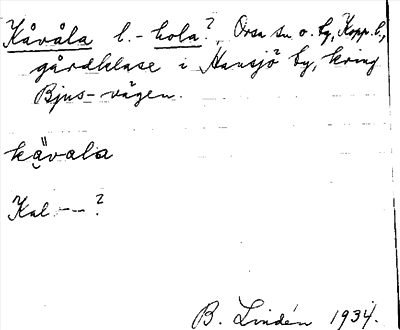 Kåvåla l. -hola? Orsa sn o. by, Kopp. l.,
gårdklase i Hansjö by, kring
Bjus-vägen.
kävala
Kal -- ?
B. Lindén 1934.